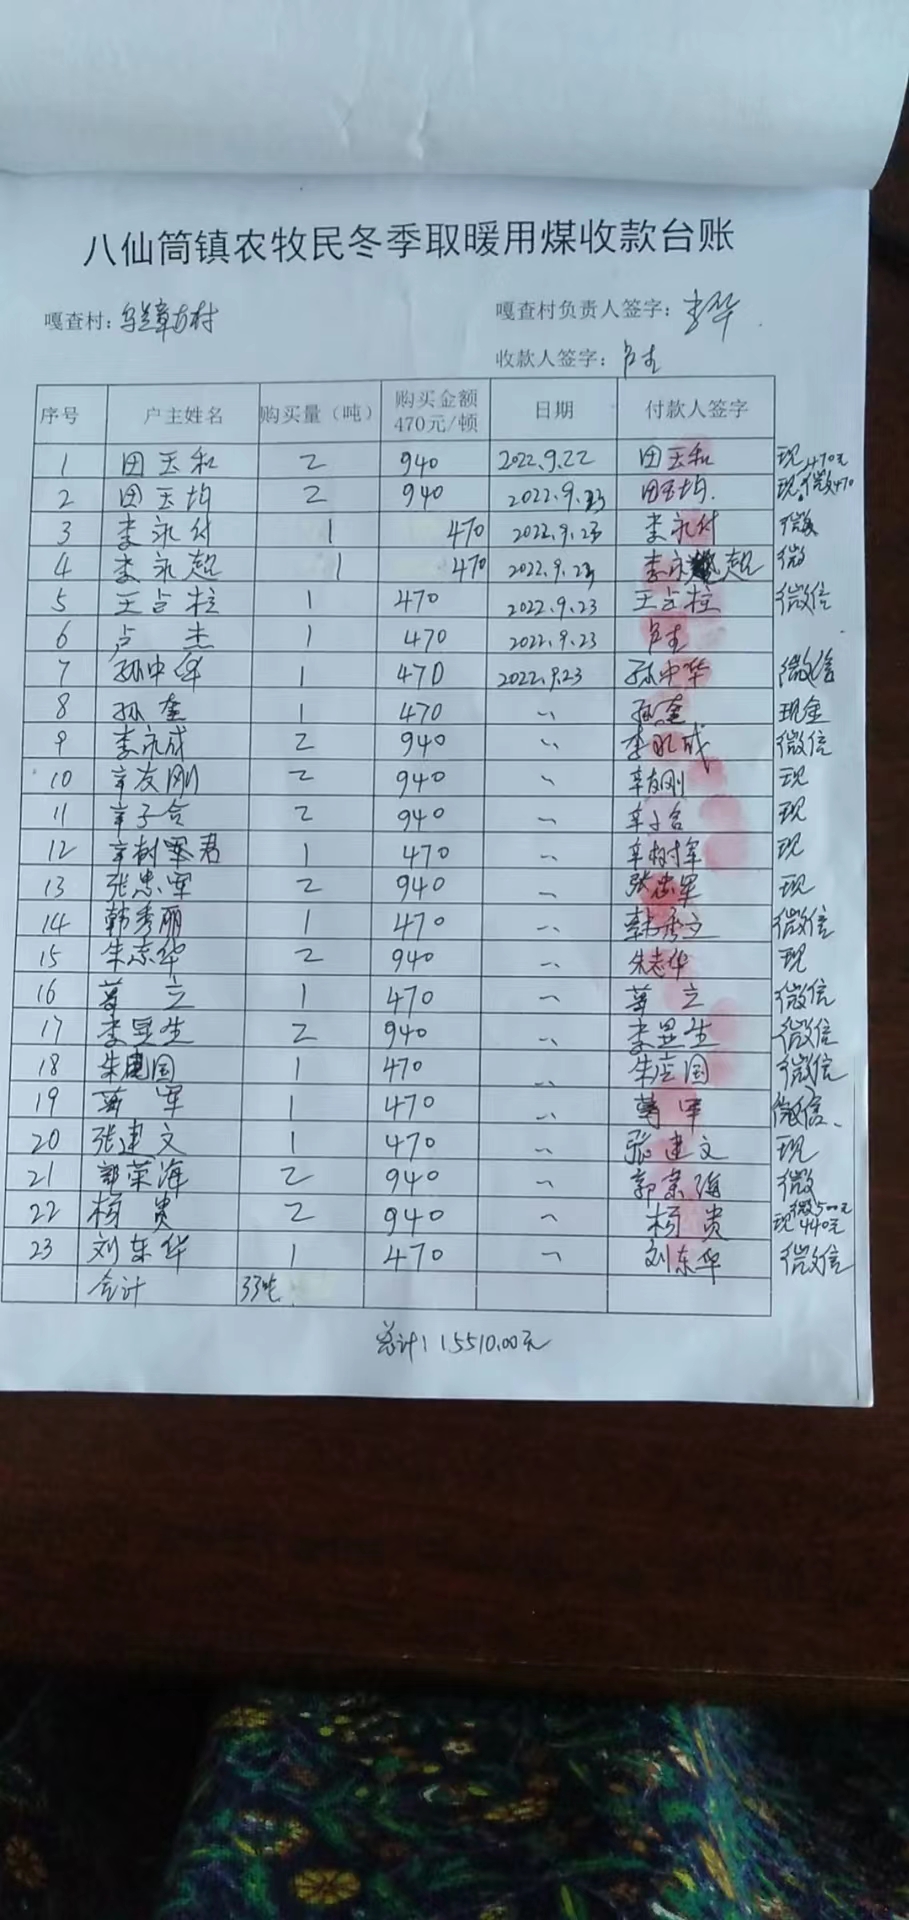 八仙筒镇农牧民冬季取暖用煤收款台账
嘎查村：乌兰章古村 嘎查村负责人签字：李华
收款人签字：卢杰
序号 户主姓名 购买量（吨） 购买金额 470元/顿 日期 付款人签字
1 田玉和 2 940 2022.9.22 田玉和 现470元
2 田玉均 2 940 2022.9.23 田玉均. 现.微470
3 李永付 1 470 2022.9.23 李永付 微
4 李永超 1 470 2022.9.23 李永超 微
5 王占柱 1 470 2022.9.23 王占柱 微信
6 卢杰 1 470 2022.9.23 卢杰
7 孙中华 1 470 2022.9.23 孙中华 微信
8 孙奎 1 470 〃 孙奎 现金
9 李永成 2 940 〃 李永成 微信
10 辛友刚 2 940 〃 辛友刚 现
11 辛子合 2 940 〃 辛子合 现
12 辛树君 1 470 〃 辛树军 现
13 张忠军 2 940 〃 张忠军 现
14 韩秀丽 1 470 〃 韩秀立 微信
15 朱志华 2 940 〃 朱志华 现
16 立 1 470 〃 立 微信
17 李显生 2 940 〃 李显生 微信
18 朱国 1 470 〃 朱应国 微信
19 军 1 470 〃 军 微信、
20 张建文 1 470 〃 张建文 现
21 郭荣海 2 940 〃 郭荣海 微
22 杨贵 2 940 〃 杨贵 微500元 现440元
23 刘东华 1 470 〃 刘东华 微信
合计 33吨
总计：15510.00元